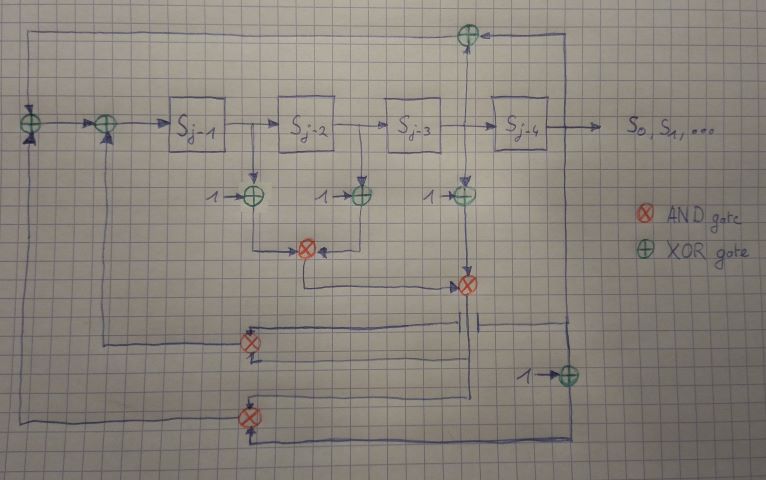 S_{j-1} S_{j-2} S_{j-3} S_{j-4} S_0, S_1, ...
1 1 1
AND gate
XOR gate
1